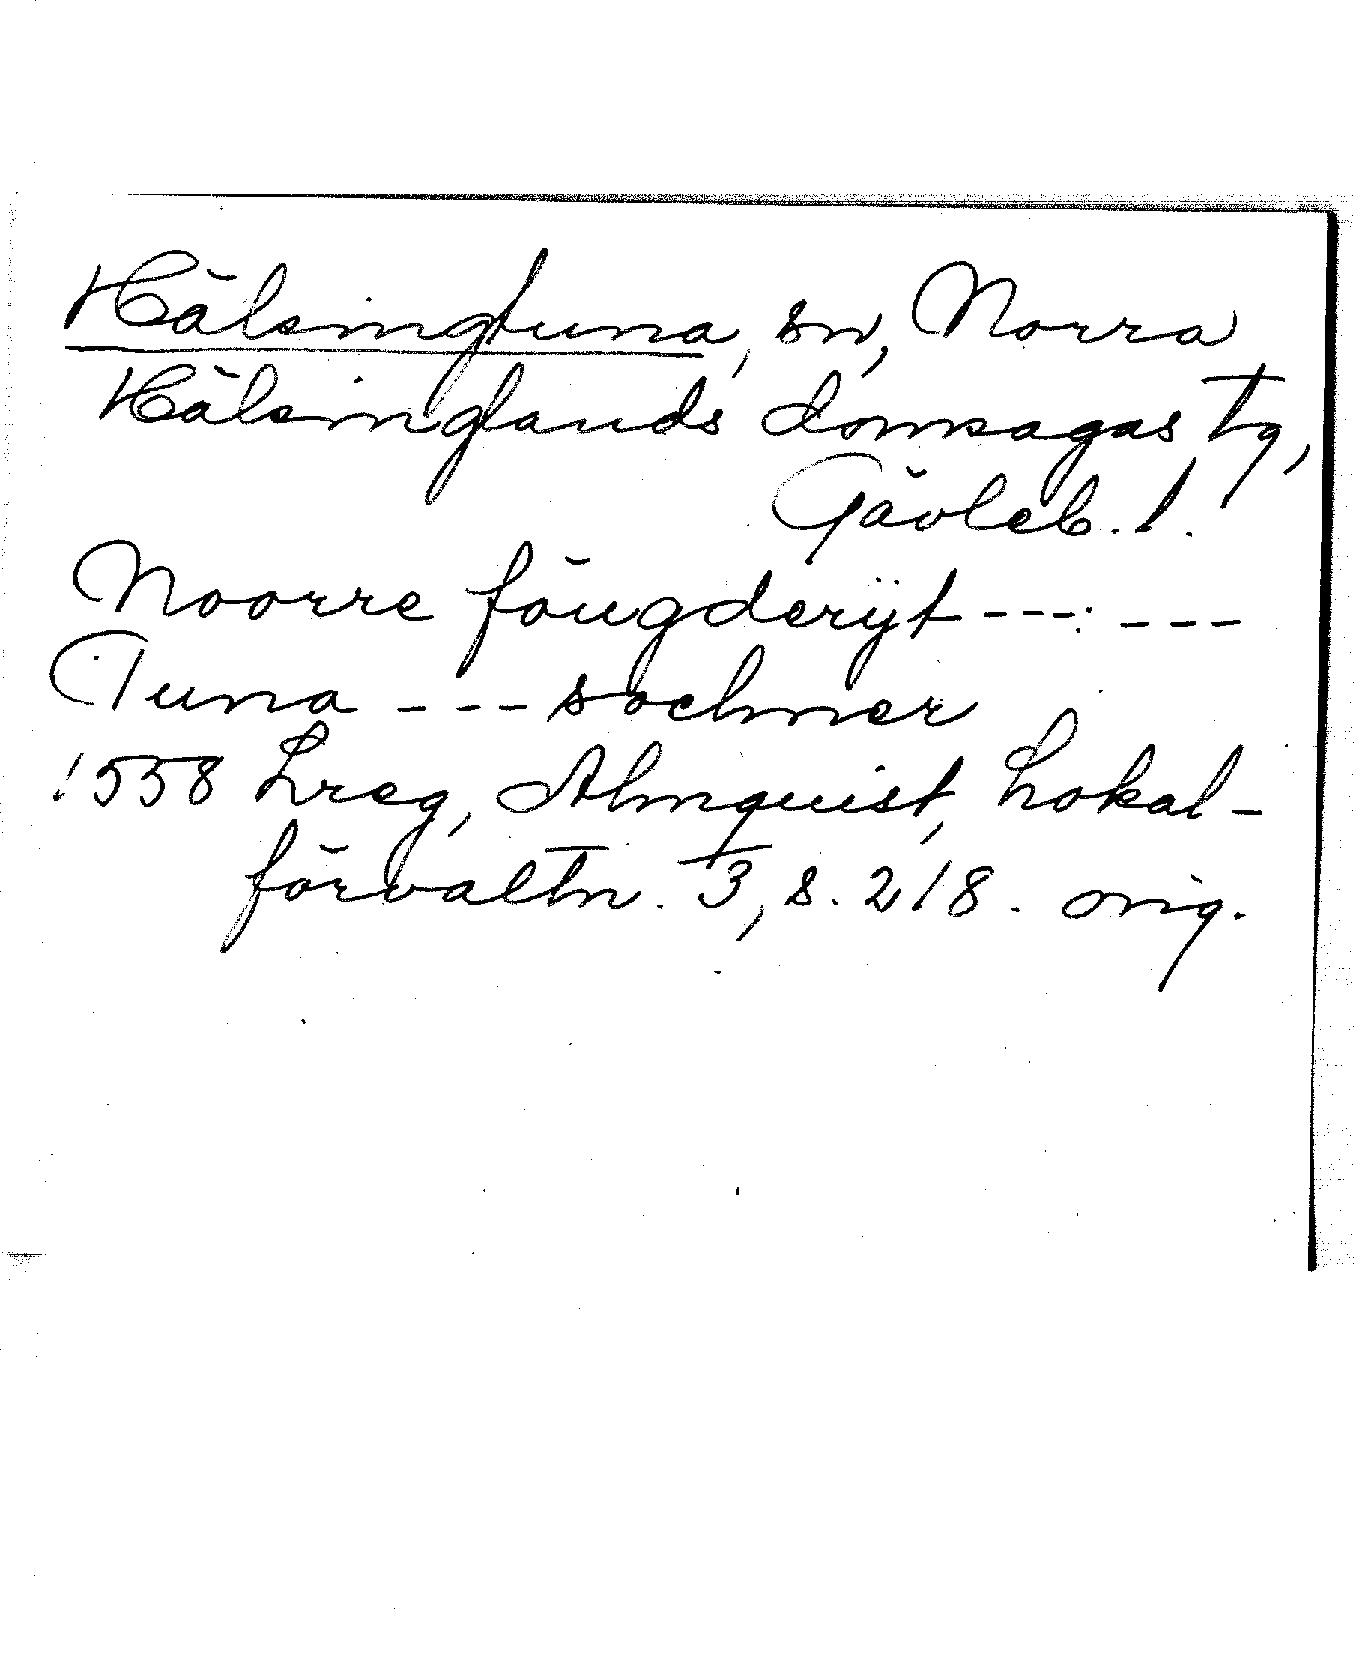 Hälsingtuna, sn, Norra
Hälsinglands domsagas tg,
Gävleb. l.
Noorre föugderÿt ---:---
Tuna --- sochner
1558 Lreg, Almquist, Lokal-
förvaltn. 3, s. 218. orig.